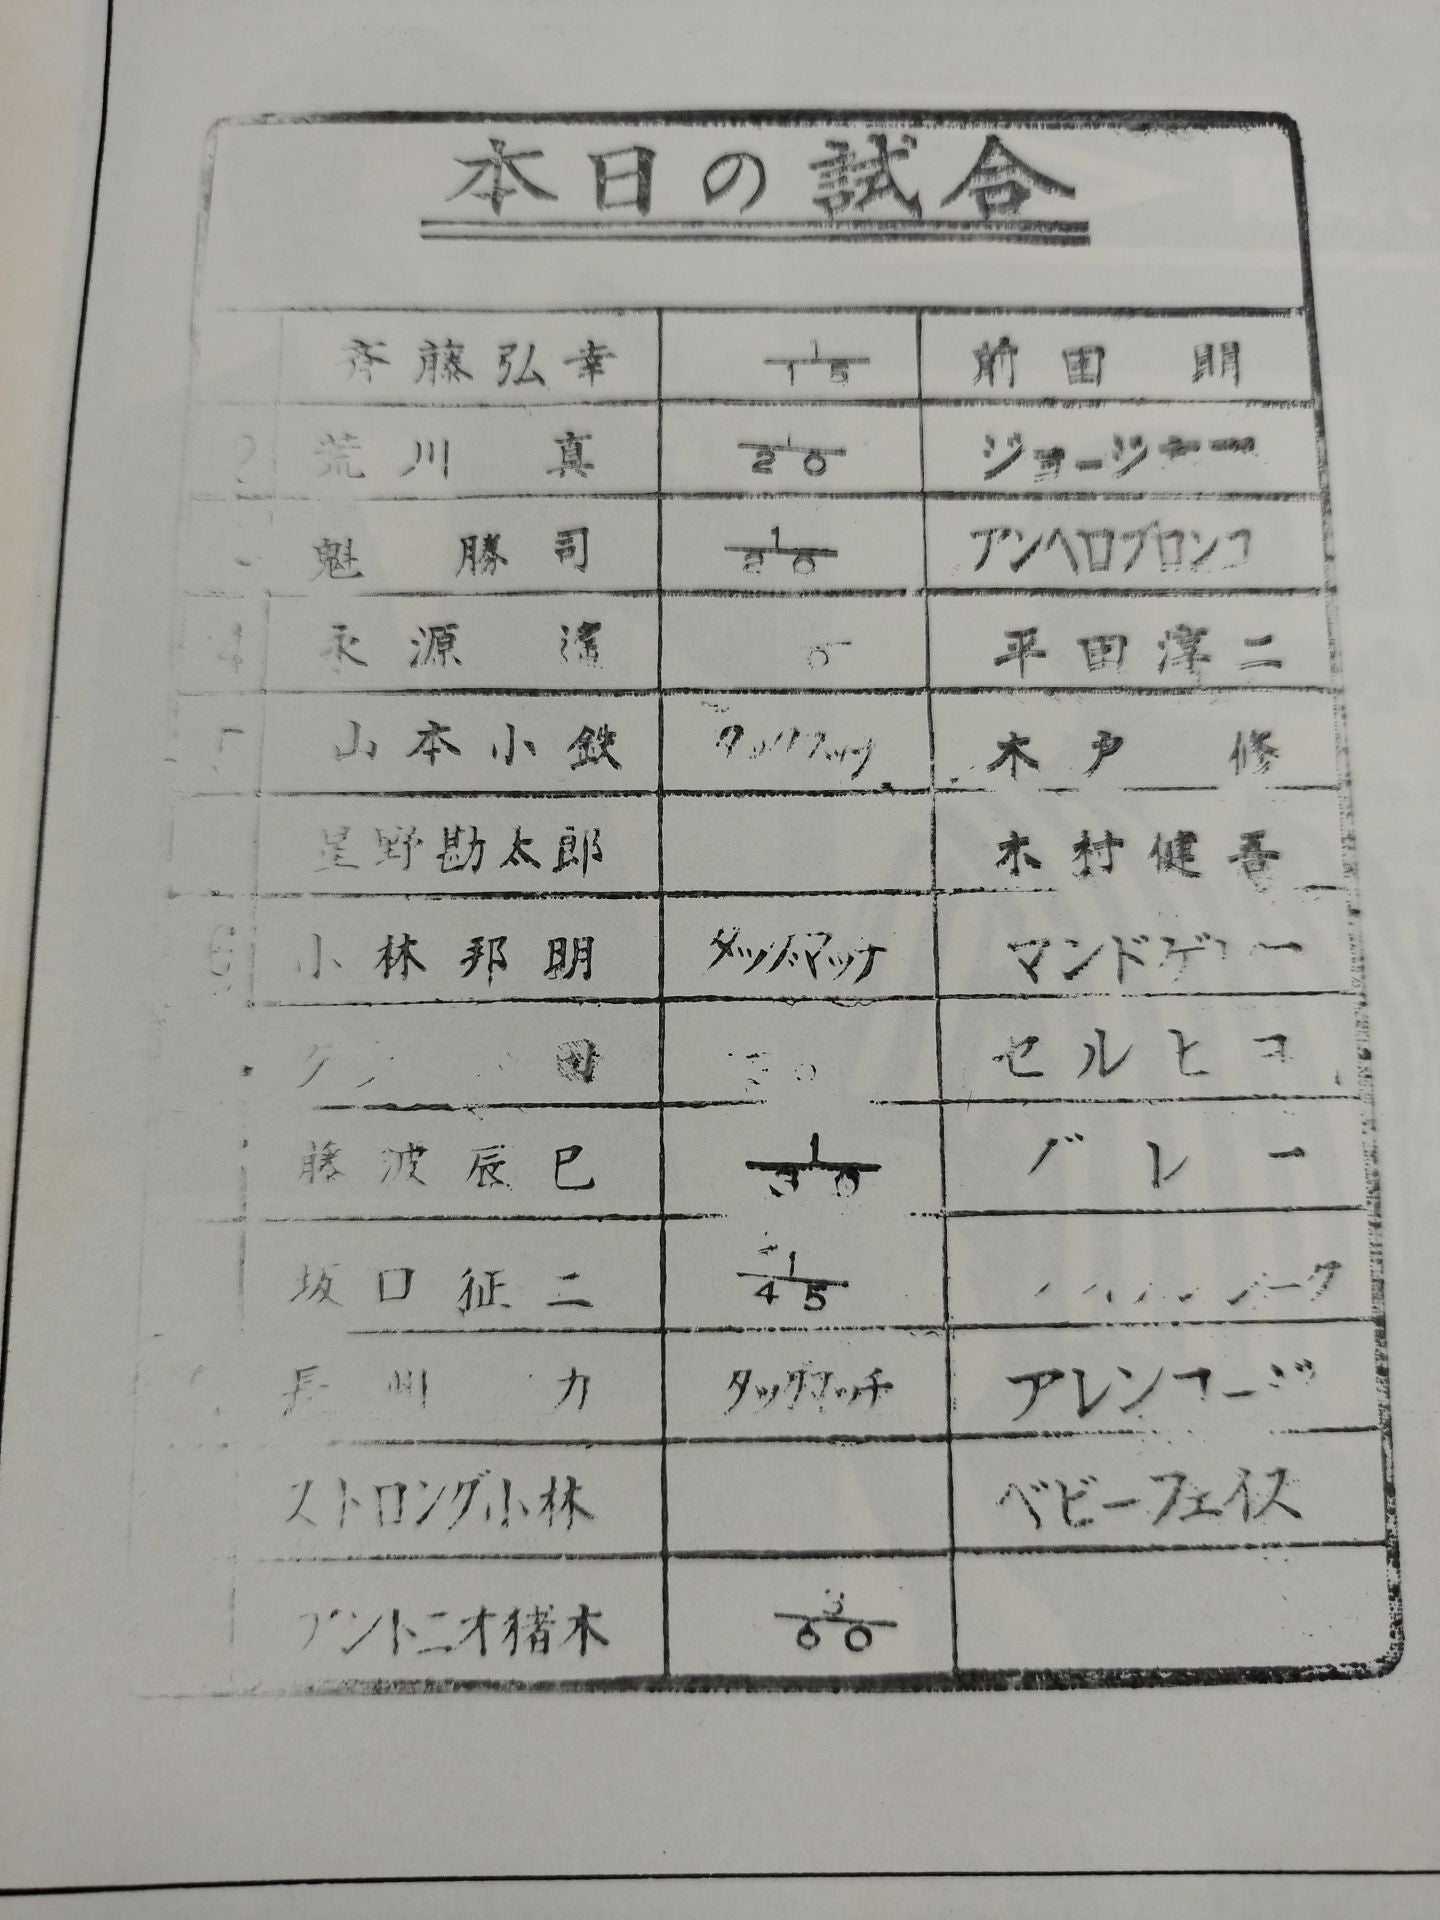 本日の試合
斉藤弘幸 1/15 前田 明
2 荒川 真 1/20 ジョージャー
魁 勝司 1/20 アンヘロブロンコ
4 永源 遙 0 平田淳二
5 山本小鉄 タッグマッチ 木戸 修
星野勘太郎 木村健吾
6 小林邦明 タッグマッチ マンドゲ
30 セルヒコ
藤波辰巳 1/30 バレー
坂口征二 1/45 ーク
長州 力 タッグマッチ アレンコージ
ストロング小林 ベビーフェイス
アントニオ猪木 3/60